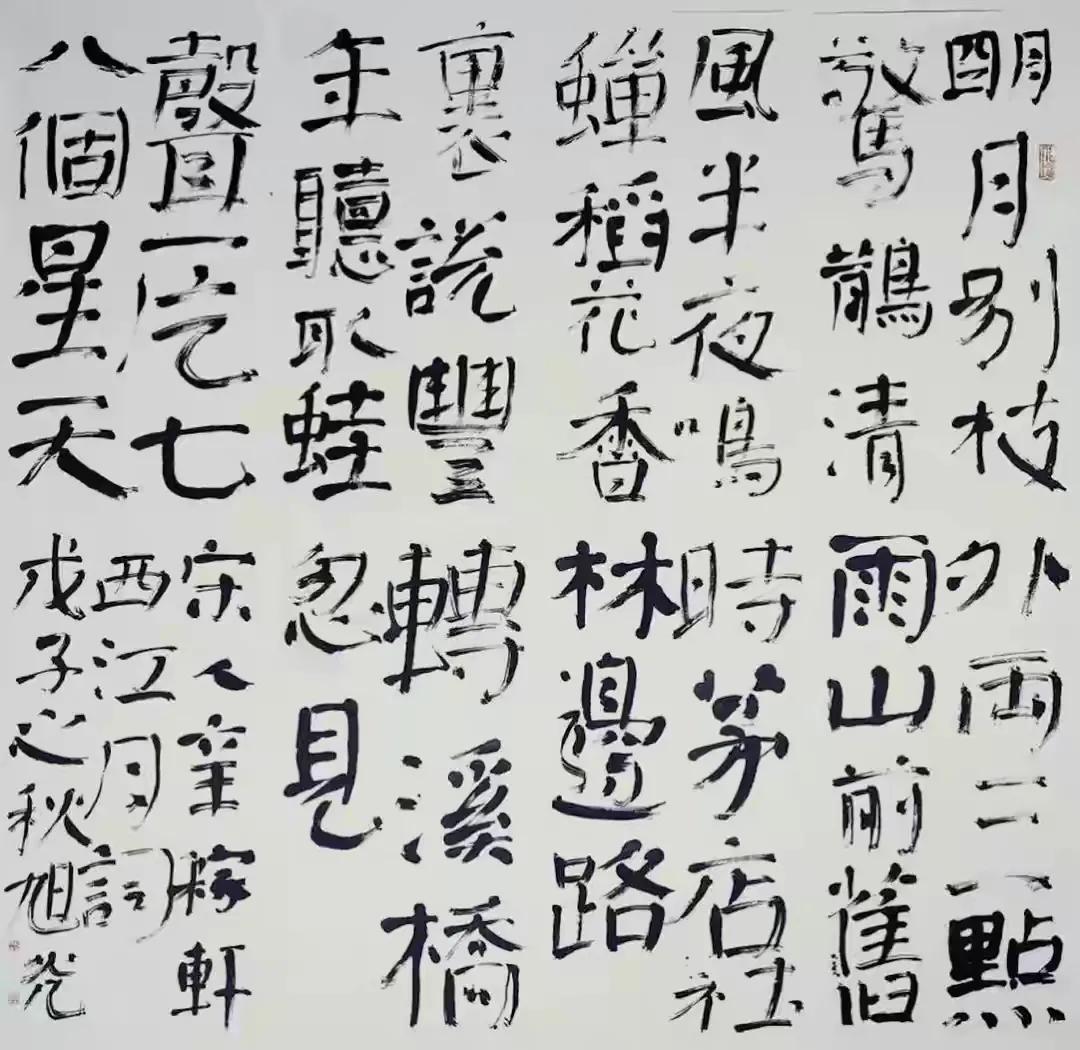 明月別枝
驚鵲清
風半夜鳴
蟬稻花香
裏說豐
年聽取蛙
聲一片七
八個星天
外兩三點
雨山前舊
時茅店社
林邊路
轉溪橋
忽見
宋人辛稼軒
西江月詞
戊子之秋旭光